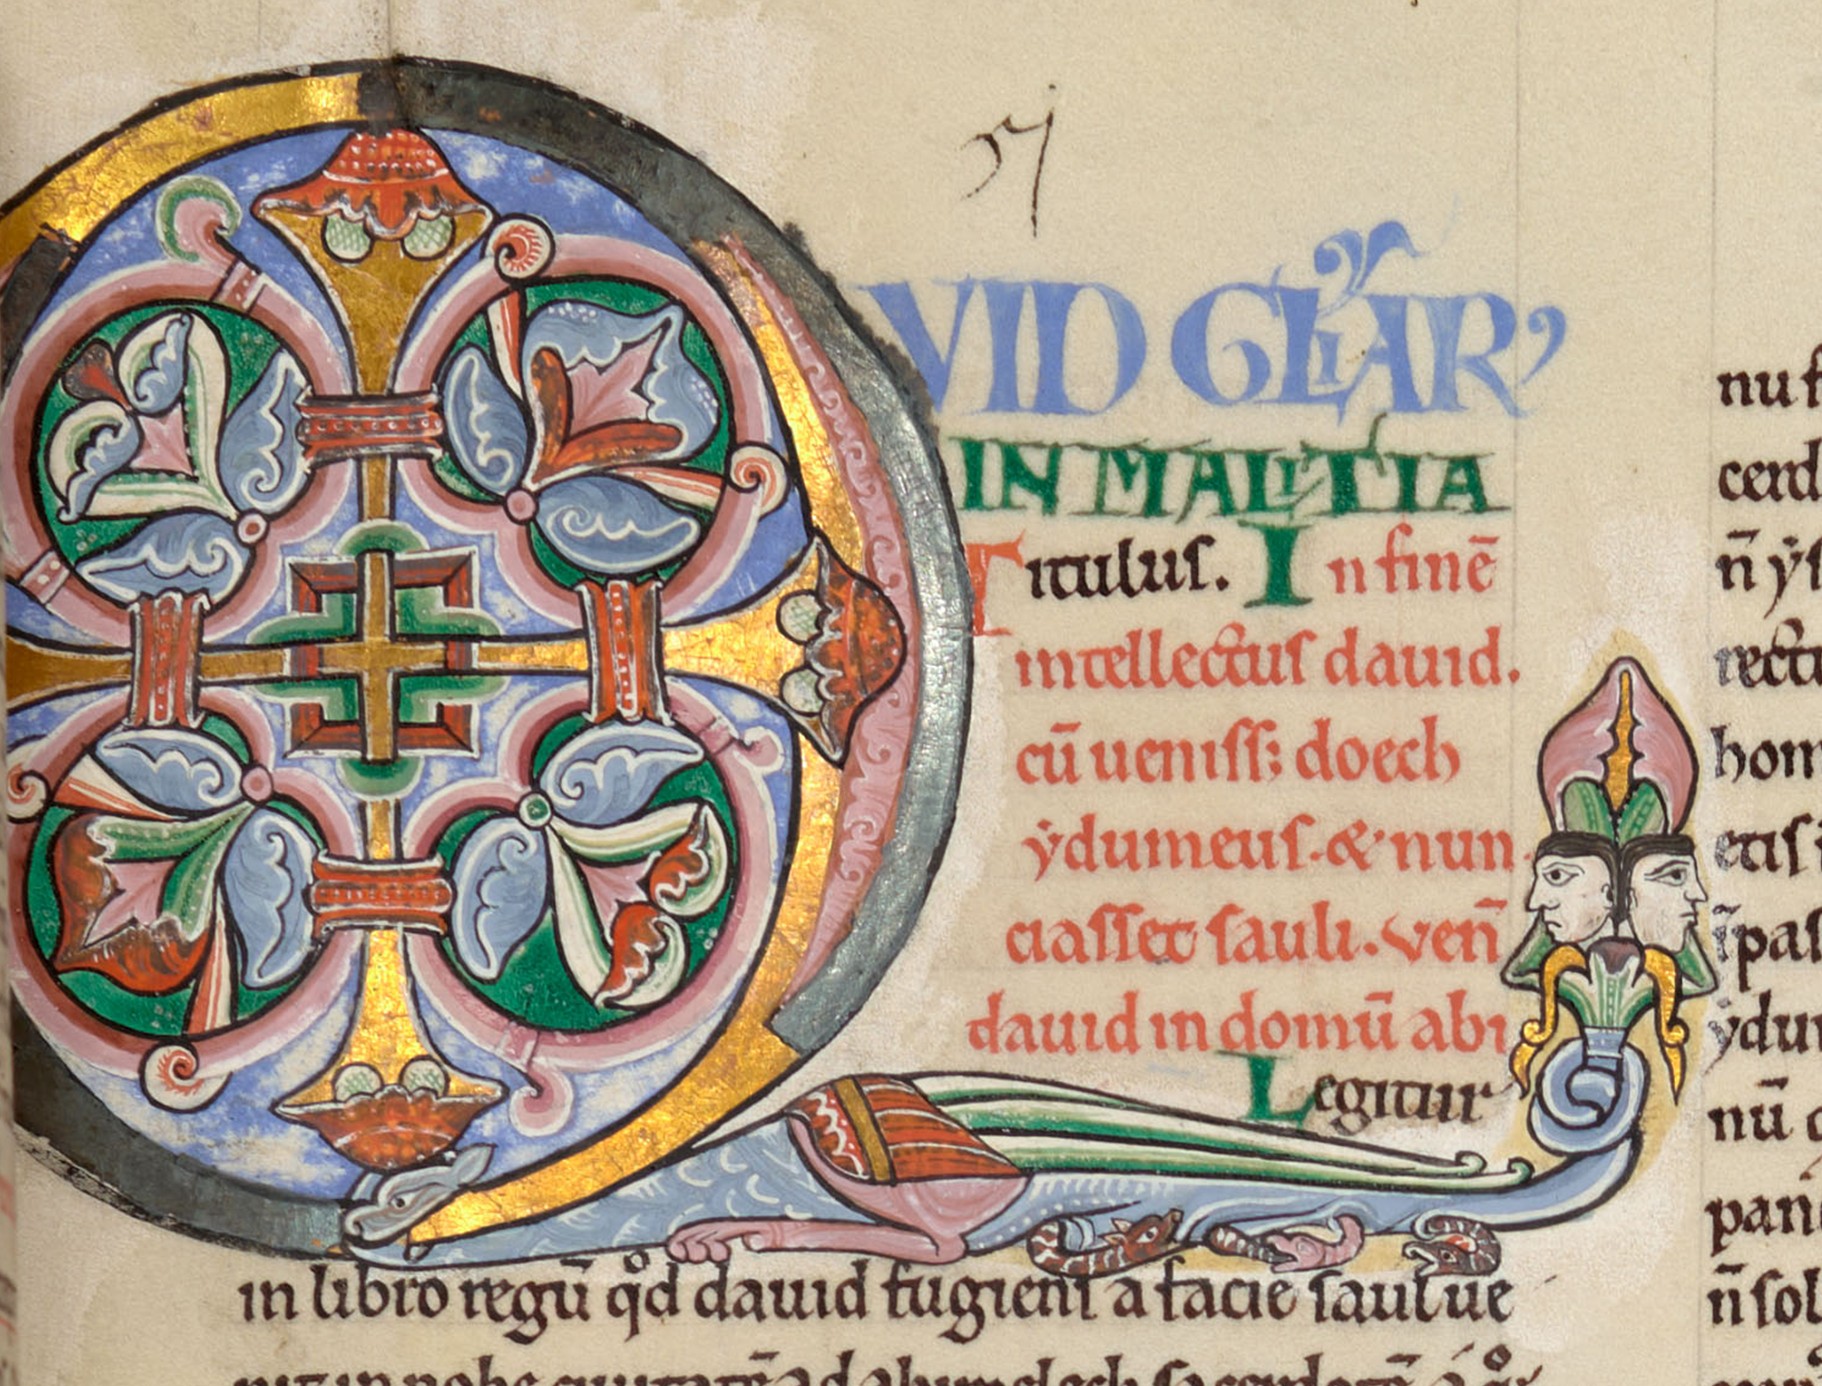 QVID GLĨAR'
IN MALITIA
Titulus. In finē
intellectus dauid.
cū uenisſ; doech
ẏdumeus. &' nun
ciasset sauli. veñ
dauid in domū abi
Legitur
in libro regū qͦd dauid fugiens a facie saul ue
nu
cerd
ñ ẏſ
rectu
hom
etis i
ĩpas
ẏdu
nū
pari
ñ sol